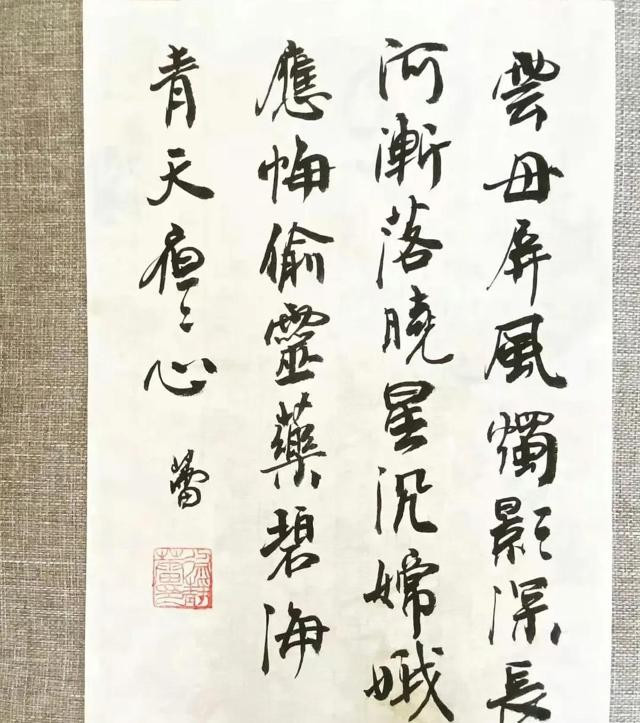 雲母屏風燭影深長
河漸落曉星沉嫦娥
應悔偷靈藥碧海
青天夜々心
蕾